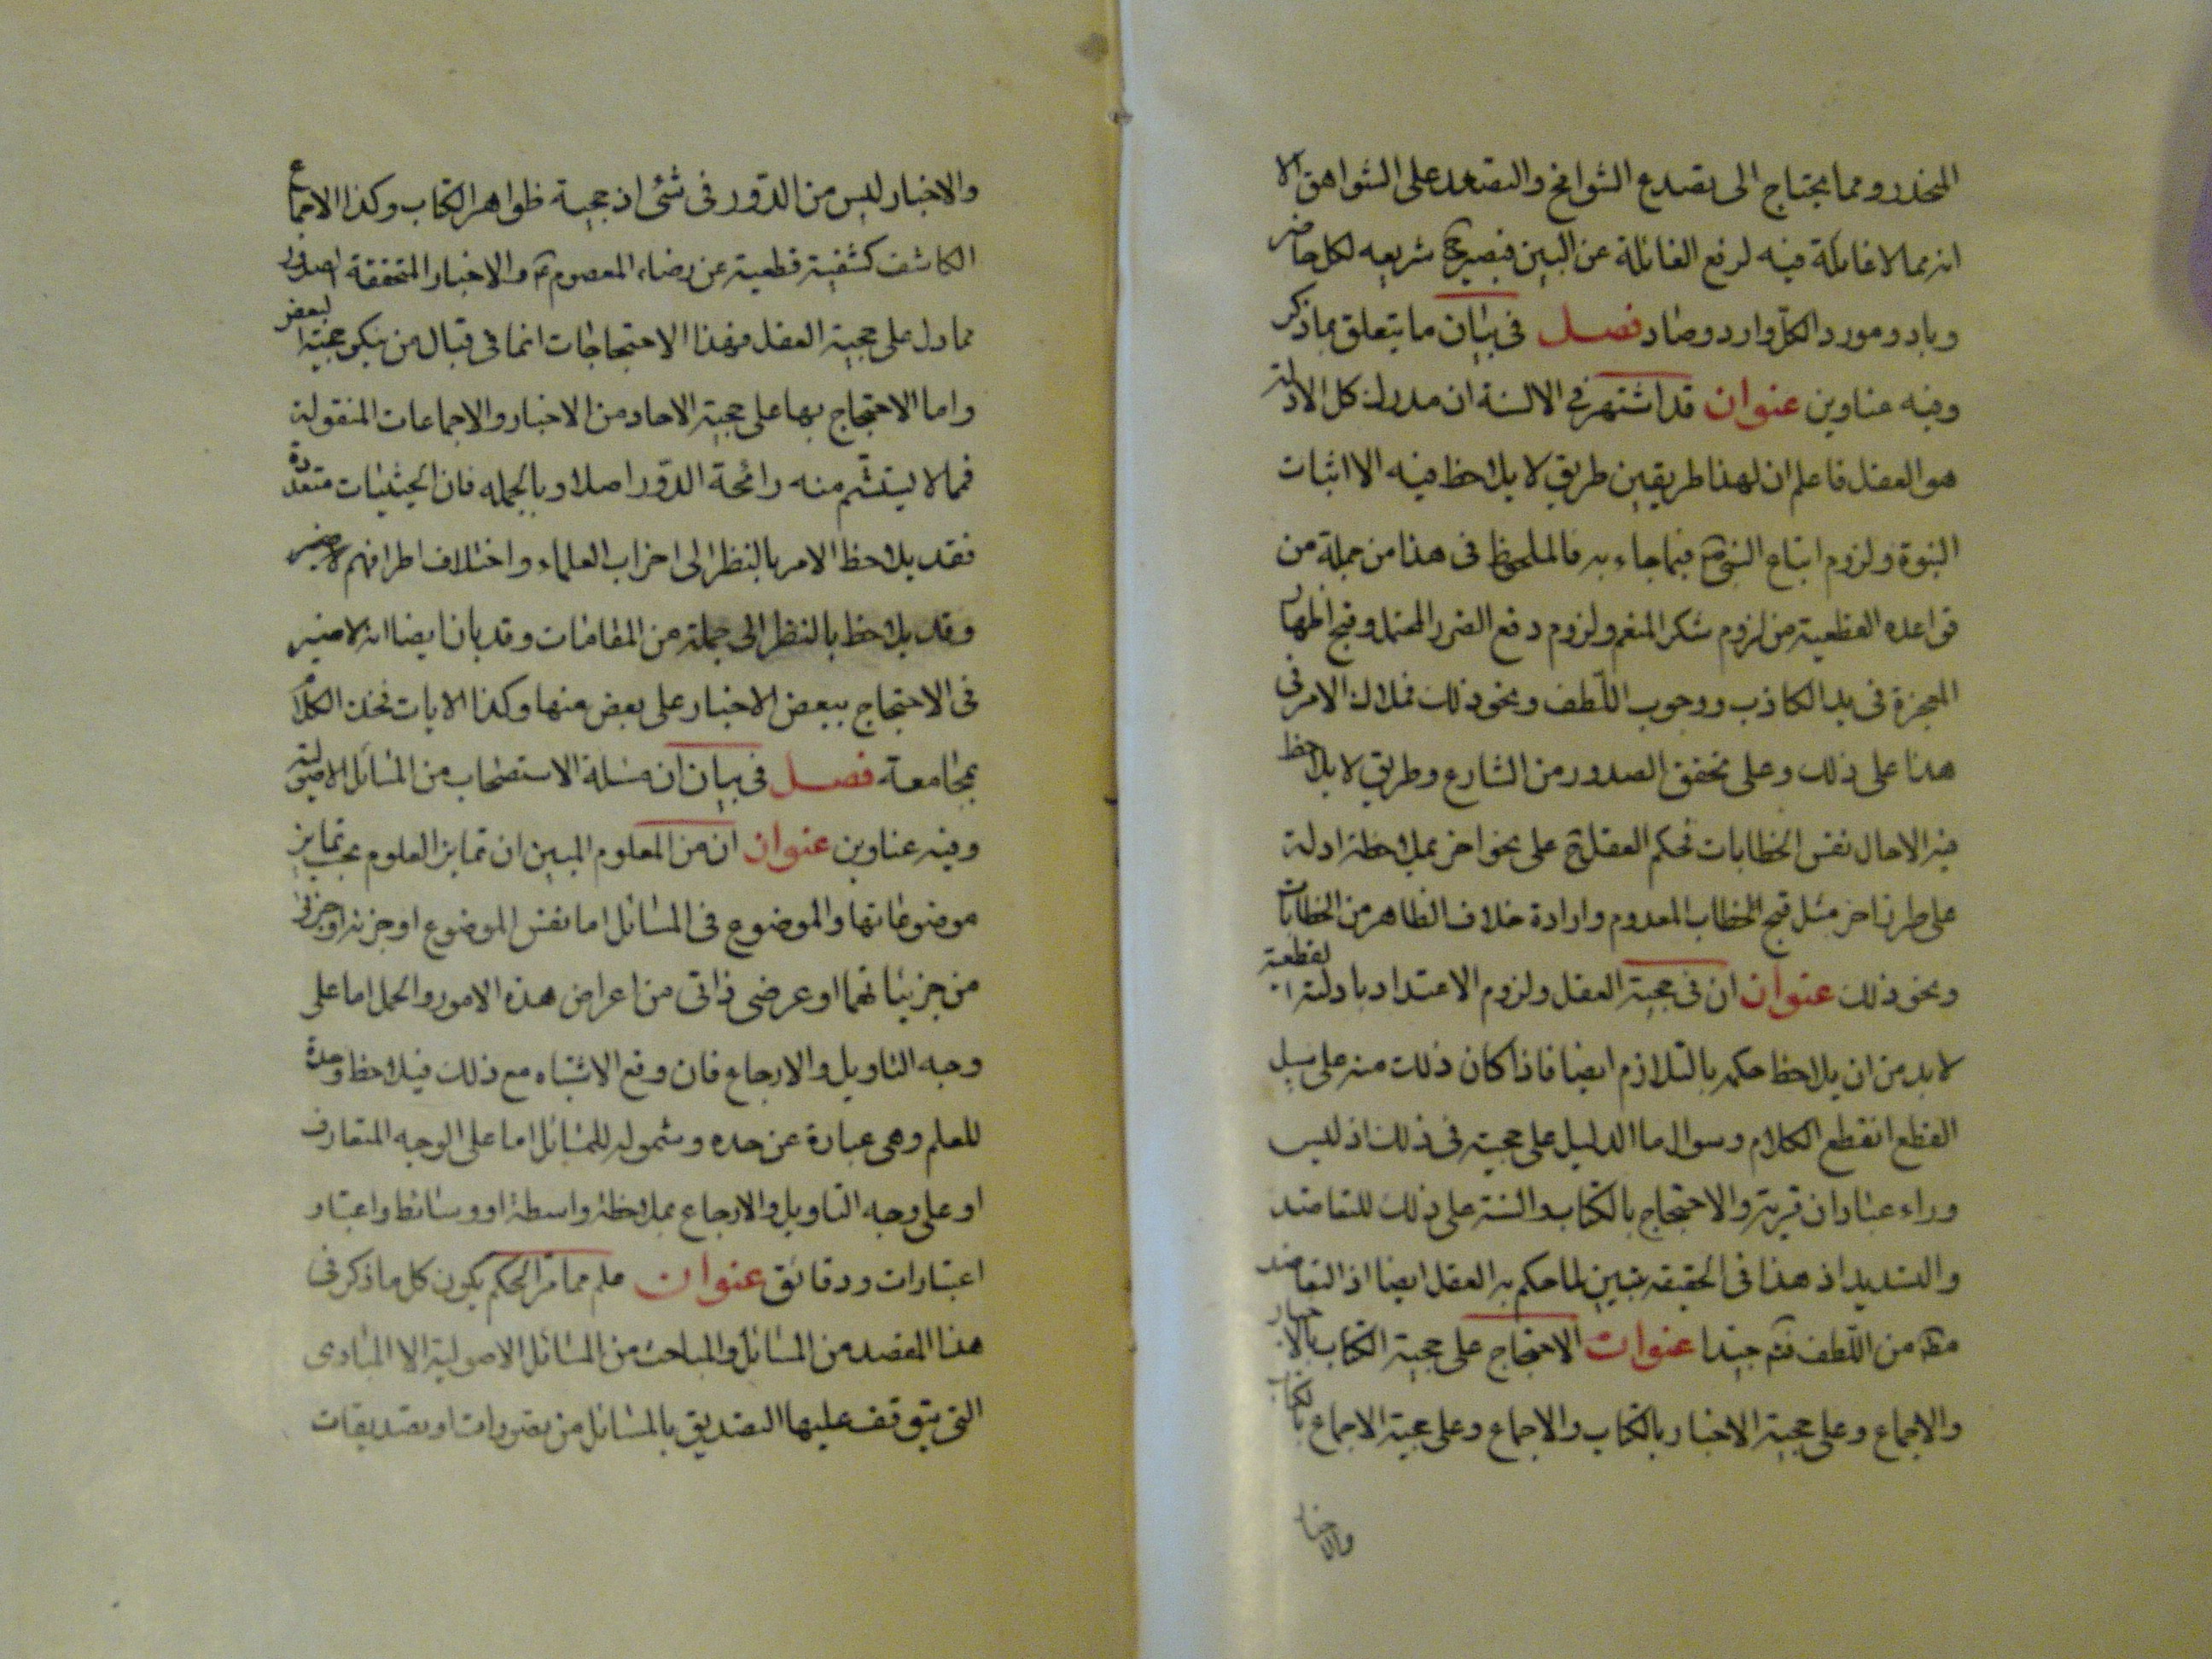 المحذر ومما يحتاج الى تصدع الشوامخ والتصعد على الشواهق الا
انه مما لا غائلة فيه لرفع الغائلة عن البين فيصير ح شريعه لكل حاضر
وباد ومورد الكل وارد وصاد فصل في بيان ما يتعلق بما ذكر
وفيه عناوين عنوان قد اشتهر في الالسنة ان مدرك كل الادلة
هو العقل فاعلم ان لهذا طريقين طريق لا يلاحظ فيه الا اثبات
النبوة ولزوم اتباع النبي ص فيما جاء به فالملحوظ في هذا من جملة من
قواعده القطعية من لزوم شكر المنعم ولزوم دفع الضرر المحتمل وقبح اظهار
المعجزة في يد الكاذب ووجوب اللطف ونحو ذلك فملاك الامر في
هذا على ذلك وعلى تحقق الصدور من الشارع وطريق لا يلاحظ
فيه الا حال نفس الخطابات فحكم العقل ح على نحو اخر بملاحظة ادلة
على طرز اخر مثل قبح الخطاب المعدوم وارادة خلاف الظاهر من الخطابات
ونحو ذلك عنوان ان في حجية العقل ولزوم الاعتداد بادلته القطعية
لا بد من ان يلاحظ حكمه بالتلازم ايضا فاذا كان ذلك منه على سبيل
القطع انقطع الكلام وسوال ما الدليل على حجيته في ذلك اذ ليس
وراء عبادان قرية والاحتجاج بالكتاب والسنة على ذلك للتعاضد
والتسديد اذ هذا في الحقيقه تبيين لما حكم به العقل ايضا اذ التعاضد
من اللطف فتم جيدا عنوان الاحتجاج على حجية الكتاب بالاخبار
والاجماع وعلى حجية الاخبار بالكتاب والاجماع وعلى حجية الاجماع بالكتاب
والاخبا
والاخبار ليس من الدور في شئ اذ حجية ظواهر الكتاب وكذا الاجماع
الكاشف كشفية قطعية عن رضاء المعصوم ع والاخبار المتحققة الصدور
مما دل على حجية العقل فهذا الاحتجاجات انما في قبال من ينكر حجية البعض
واما الاحتجاج بها على حجية الاحاد من الاخبار والاجماعات المنقولة
فمما لا يستشم منه رائحة الدور اصلا وبالجمله فان الحيثيات متعددة
فقد يلاحظ الامر بالنظر الى احزاب العلماء واختلاف اطرافهم لا ضير
وقد يلاحظ بالنظر الى جملة من المقامات وقد بان ايضا انه لا ضير
في الاحتجاج ببعض الاخبار على بعض منها وكذا الايات فخذ الكلام
بمجامعه فصل في بيان ان مسئلة الاستصحاب من المسائل الاصولية
وفيه عناوين عنوان ان من المعلوم المبين ان تمايز العلوم بحسب تمايز
موضوعاتها والموضوع في المسائل اما نفس الموضوع او جزئه او جزئى
من جزئياتهما او عرضى ذاتى من اعراض هذه الامور والحمل اما على
وجه التاويل والارجاع فان وقع الاشتباه مع ذلك فيلاحظ وحدة
للعلم وهى عبارة عن حده وشموله للمسائل اما على الوجه المتعارف
او على وجه التاويل والارجاع بملاحظة واسطة او وسائط واعتبار
اعتبارات ودقائق عنوان علم مما مر الحكم بكون كل ما ذكر في
هذا المقصد من المسائل والمباحث من المسائل الاصولية الا المبادى
التى يتوقف عليها التصديق بالمسائل من تصورات او تصديقات